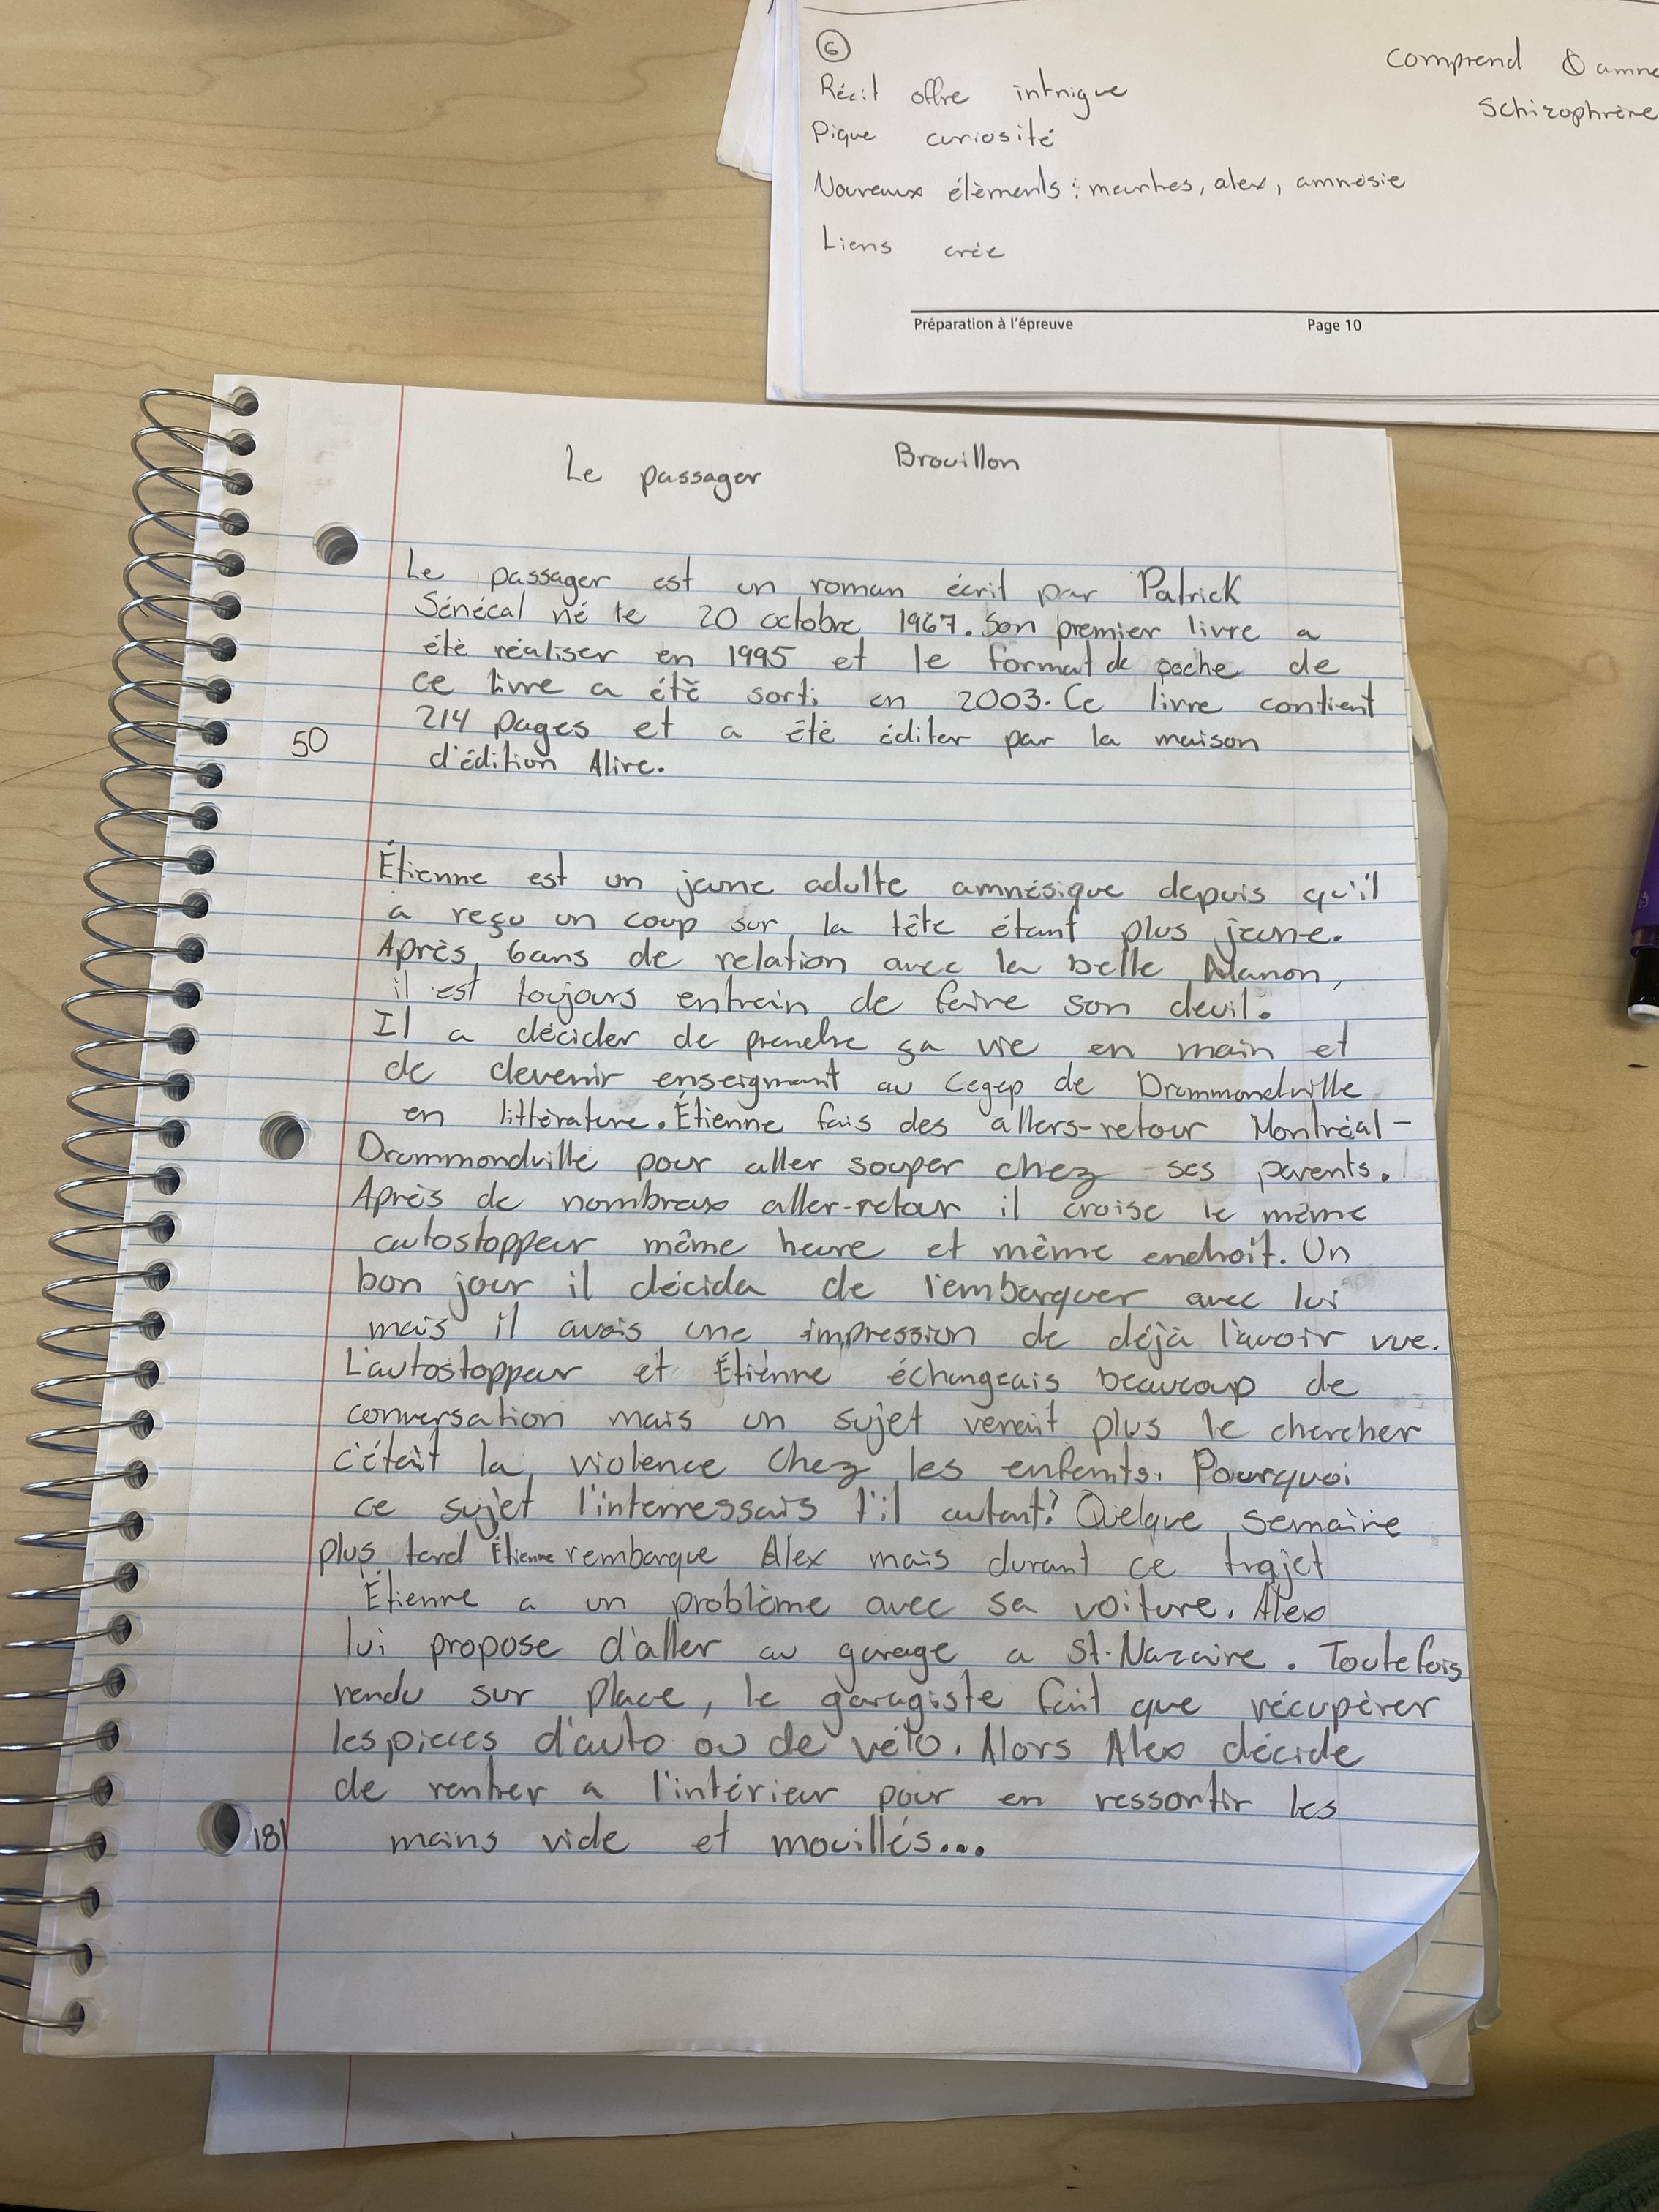 6
Récit offre intrigue
Pique curiosité
Nouveaux éléments : meurtres, alex, amnésie
Liens crée
comprend & amne
Schizophrène
Préparation à l'épreuve Page 10
Le passager Brouillon
Le passager est un roman écrit par Patrick
Sénécal né le 20 octobre 1967. Son premier livre a
été réaliser en 1995 et le format de poche de
ce livre a été sorti en 2003. Ce livre contient
214 pages et a été éditer par la maison
50 d'édition Alire.
Étienne est un jeune adulte amnésique depuis qu'il
a reçu un coup sur la tête étant plus jeune.
Après 6ans de relation avec la belle Manon,
il est toujours entrain de faire son deuil.
Il a décider de prendre ça vie en main et
de devenir enseignant au Cegep de Drummondville
en littérature. Étienne fais des allers-retour Montréal-
Drummondville pour aller souper chez ses parents.
Après de nombreux aller-retour il croise le même
autostoppeur même heure et même endroit. Un
bon jour il décida de l'embarquer avec lui
mais il avais une impression de déjà l'avoir vue.
L'autostoppeur et Étienne échangeais beaucoup de
conversation mais un sujet venait plus le chercher
c'était la violence chez les enfants. Pourquoi
ce sujet l'interressais t'il autant? Quelque semaine
plus tard Étienne rembarque Alex mais durant ce trajet
Étienne a un problème avec sa voiture. Alex
lui propose d'aller au garage a St-Nazaire. Toutefois
rendu sur place, le garagiste fait que récupérer
les pieces d'auto ou de vélo. Alors Alex décide
de rentrer a l'intérieur pour en ressortir les
181 mains vide et mouillés...